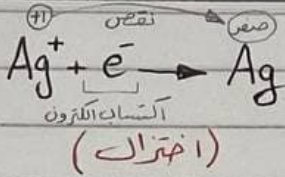 +1 نقص صفر
Ag⁺ + e⁻ → Ag
اكتساب الكترون
(اختزال)